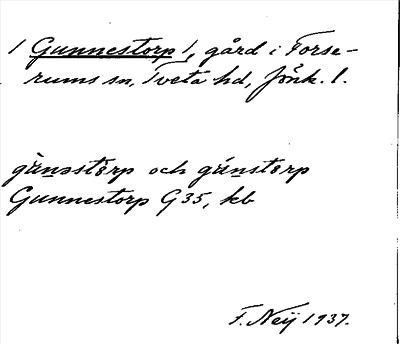 / Gunnestorp /, gård i Forse-
rums sn, Tveta hd, Jönk. l.
gùnəstårp och gúnstårp
Gunnestorp G35, kb
F. Neij 1937.